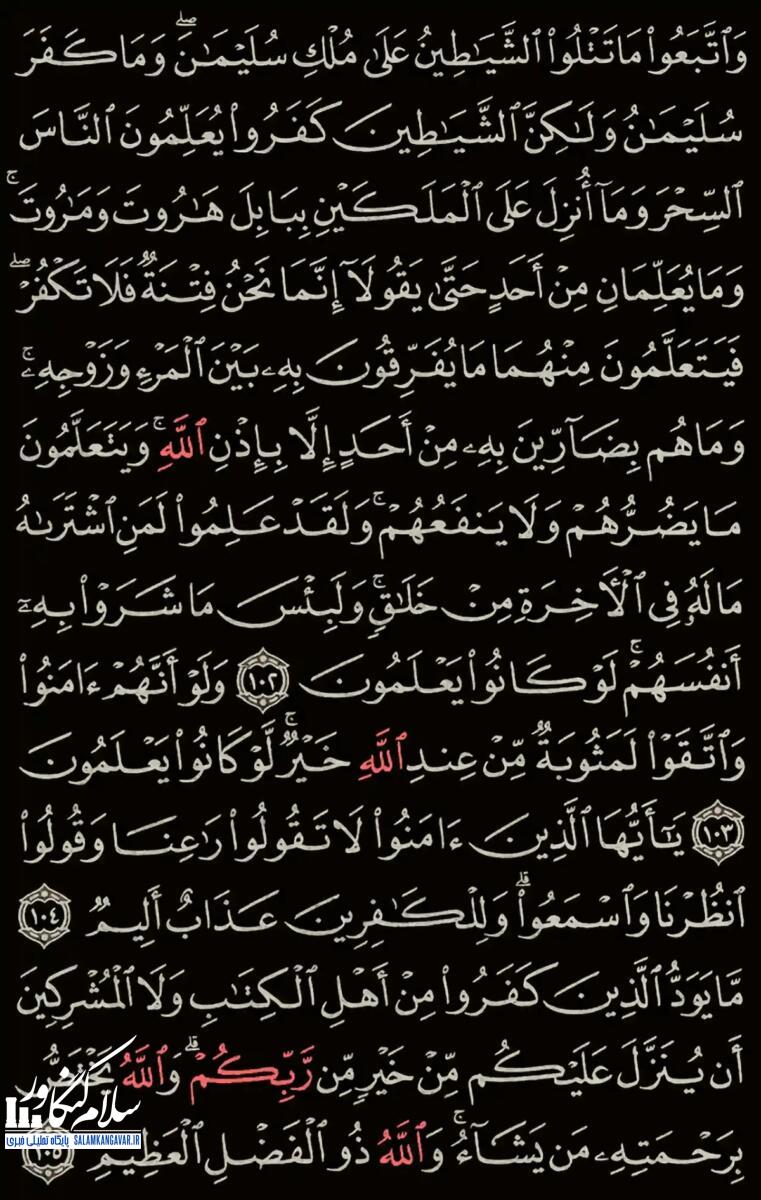 وَٱتَّبَعُوا۟ مَا تَتْلُوا۟ ٱلشَّيَـٰطِينُ عَلَىٰ مُلْكِ سُلَيْمَـٰنَ ۖ وَمَا كَفَرَ
سُلَيْمَـٰنُ وَلَـٰكِنَّ ٱلشَّيَـٰطِينَ كَفَرُوا۟ يُعَلِّمُونَ ٱلنَّاسَ
ٱلسِّحْرَ وَمَآ أُنزِلَ عَلَى ٱلْمَلَكَيْنِ بِبَابِلَ هَـٰرُوتَ وَمَـٰرُوتَ ۚ
وَمَا يُعَلِّمَانِ مِنْ أَحَدٍ حَتَّىٰ يَقُولَآ إِنَّمَا نَحْنُ فِتْنَةٌ فَلَا تَكْفُرْ ۖ
فَيَتَعَلَّمُونَ مِنْهُمَا مَا يُفَرِّقُونَ بِهِۦ بَيْنَ ٱلْمَرْءِ وَزَوْجِهِۦ ۚ
وَمَا هُم بِضَآرِّينَ بِهِۦ مِنْ أَحَدٍ إِلَّا بِإِذْنِ ٱللَّهِ ۚ وَيَتَعَلَّمُونَ
مَا يَضُرُّهُمْ وَلَا يَنفَعُهُمْ ۚ وَلَقَدْ عَلِمُوا۟ لَمَنِ ٱشْتَرَىٰهُ
مَا لَهُۥ فِى ٱلْـَٔاخِرَةِ مِنْ خَلَـٰقٍ ۚ وَلَبِئْسَ مَا شَرَوْا۟ بِهِۦٓ
أَنفُسَهُمْ ۚ لَوْ كَانُوا۟ يَعْلَمُونَ ١٠٢ وَلَوْ أَنَّهُمْ ءَامَنُوا۟
وَٱتَّقَوْا۟ لَمَثُوبَةٌ مِّنْ عِندِ ٱللَّهِ خَيْرٌ ۚ لَّوْ كَانُوا۟ يَعْلَمُونَ
١٠٣ يَـٰٓأَيُّهَا ٱلَّذِينَ ءَامَنُوا۟ لَا تَقُولُوا۟ رَٰعِنَا وَقُولُوا۟
ٱنظُرْنَا وَٱسْمَعُوا۟ ۗ وَلِلْكَـٰفِرِينَ عَذَابٌ أَلِيمٌ ١٠٤
مَّا يَوَدُّ ٱلَّذِينَ كَفَرُوا۟ مِنْ أَهْلِ ٱلْكِتَـٰبِ وَلَا ٱلْمُشْرِكِينَ
أَن يُنَزَّلَ عَلَيْكُم مِّنْ خَيْرٍ مِّن رَّبِّكُمْ ۗ وَٱللَّهُ يَخْتَصُّ
بِرَحْمَتِهِۦ مَن يَشَآءُ ۚ وَٱللَّهُ ذُو ٱلْفَضْلِ ٱلْعَظِيمِ ١٠٥
سلام کنگاور
پایگاه تحلیلی خبری SALAMKANGAVAR.IR